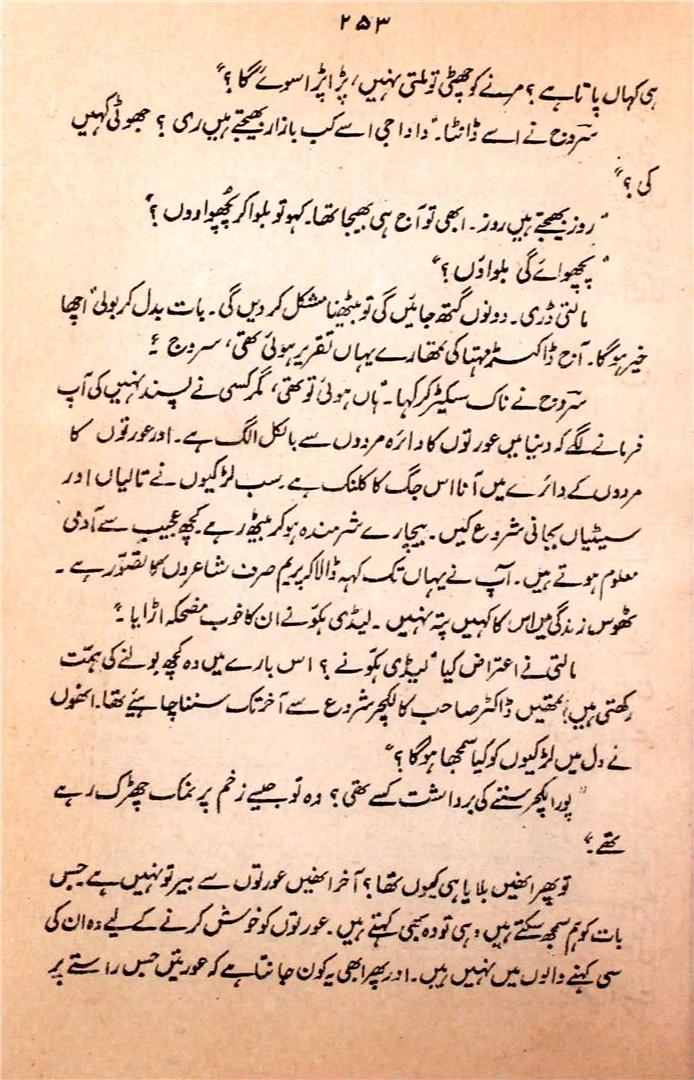 ۲۵۳
ہی کہاں پاتا ہے ؟ مرنے کو چھٹی تو ملتی نہیں، پڑا پڑا سوئے گا ؟"
سروج نے اسے ڈانٹا۔ "دادا جی اسے کب بازار بھیجتے ہیں ری ؟ جھوٹی کہیں
کی ؟"
"روز بھیجتے ہیں روز۔ ابھی تو آج ہی بھیجا تھا۔ کہو تو بلوا کر پُچھوا دوں ؟"
"پچھوائے گی بلواؤں ؟"
مالتی ڈری۔ دونوں گتھ جائیں گی تو بیٹھنا مشکل کر دیں گی۔ بات بدل کر بولی "اچھا
خیر ہو گا۔ آج ڈاکٹر مہتا کی تمھارے یہاں تقریر ہوئی تھی، سروج ؟"
سروج نے ناک سکیڑ کر کہا۔ "ہاں ہوئی تو تھی، مگر کسی نے پسند نہیں کی آپ
فرمانے لگے کہ دنیا میں عورتوں کا دائرہ مردوں سے بالکل الگ ہے۔ اور عورتوں کا
مردوں کے دائرے میں آنا اس جگ کا کلنک ہے۔ سب لڑکیوں نے تالیاں اور
سیٹیاں بجانی شروع کیں۔ بیچارے شرمندہ ہو کر بیٹھ رہے۔ کچھ عجیب سے آدمی
معلوم ہوتے ہیں۔ آپ نے یہاں تک کہہ ڈالا کہ پریم صرف شاعروں کا تصوّر ہے۔
ٹھوس زندگی میں اس کا کہیں پتہ نہیں۔ لیڈی ہکّو نے ان کا خوب مضحکہ اڑایا۔"
مالتی نے اعتراض کیا "لیڈی ہکّو نے ؟ اس بارے میں وہ کچھ بولنے کی ہمّت
رکھتی ہیں! تمھیں ڈاکٹر صاحب کا لکچر شروع سے آخر تک سننا چاہیئے تھا۔ انھوں
نے دل میں لڑکیوں کو کیا سمجھا ہوگا ؟"
"پورا لکچر سننے کی برداشت کسے تھی ؟ وہ تو جیسے زخم پر نمک چھڑک رہے
تھے۔"
تو پھر انھیں بلایا ہی کیوں تھا ؟ آخر انھیں عورتوں سے بیر تو نہیں ہے۔ جس
بات کو ہم سمجھ سکتے ہیں وہی تو وہ بھی کہتے ہیں۔ عورتوں کو خوش کرنے کے لیے وہ ان کی
سی کہنے والوں میں نہیں ہیں۔ اور پھر ابھی یہ کون جانتا ہے کہ عورتیں جس راستے پر